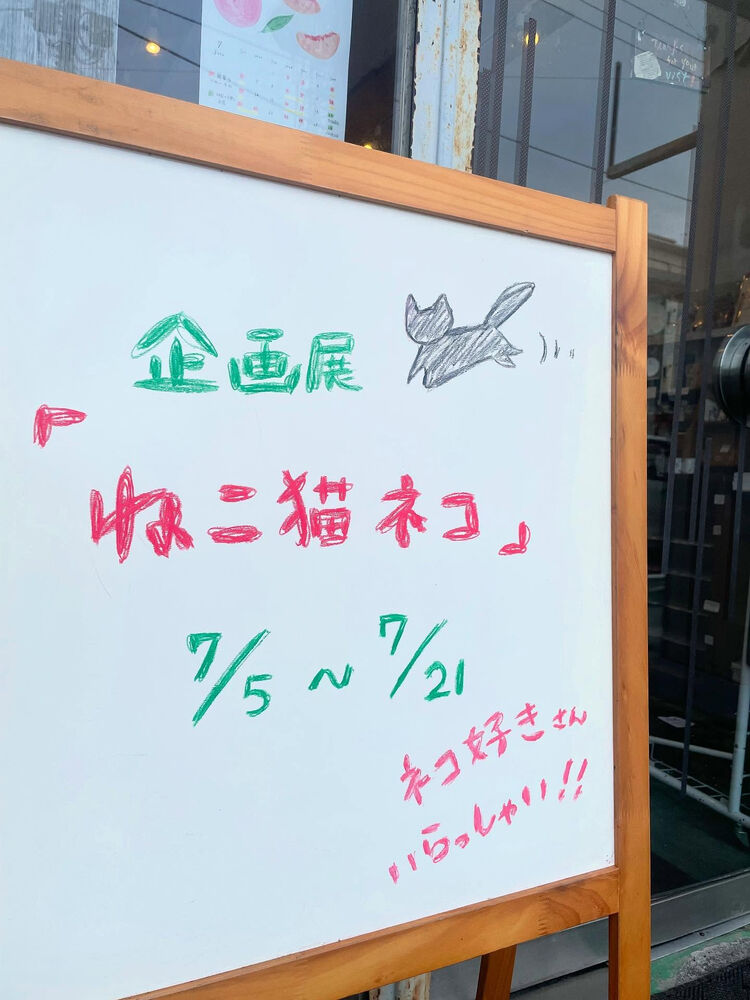 企画展
「ねこ猫ネコ」
7/5～7/21
ネコ好きさん
いらっしゃい!!